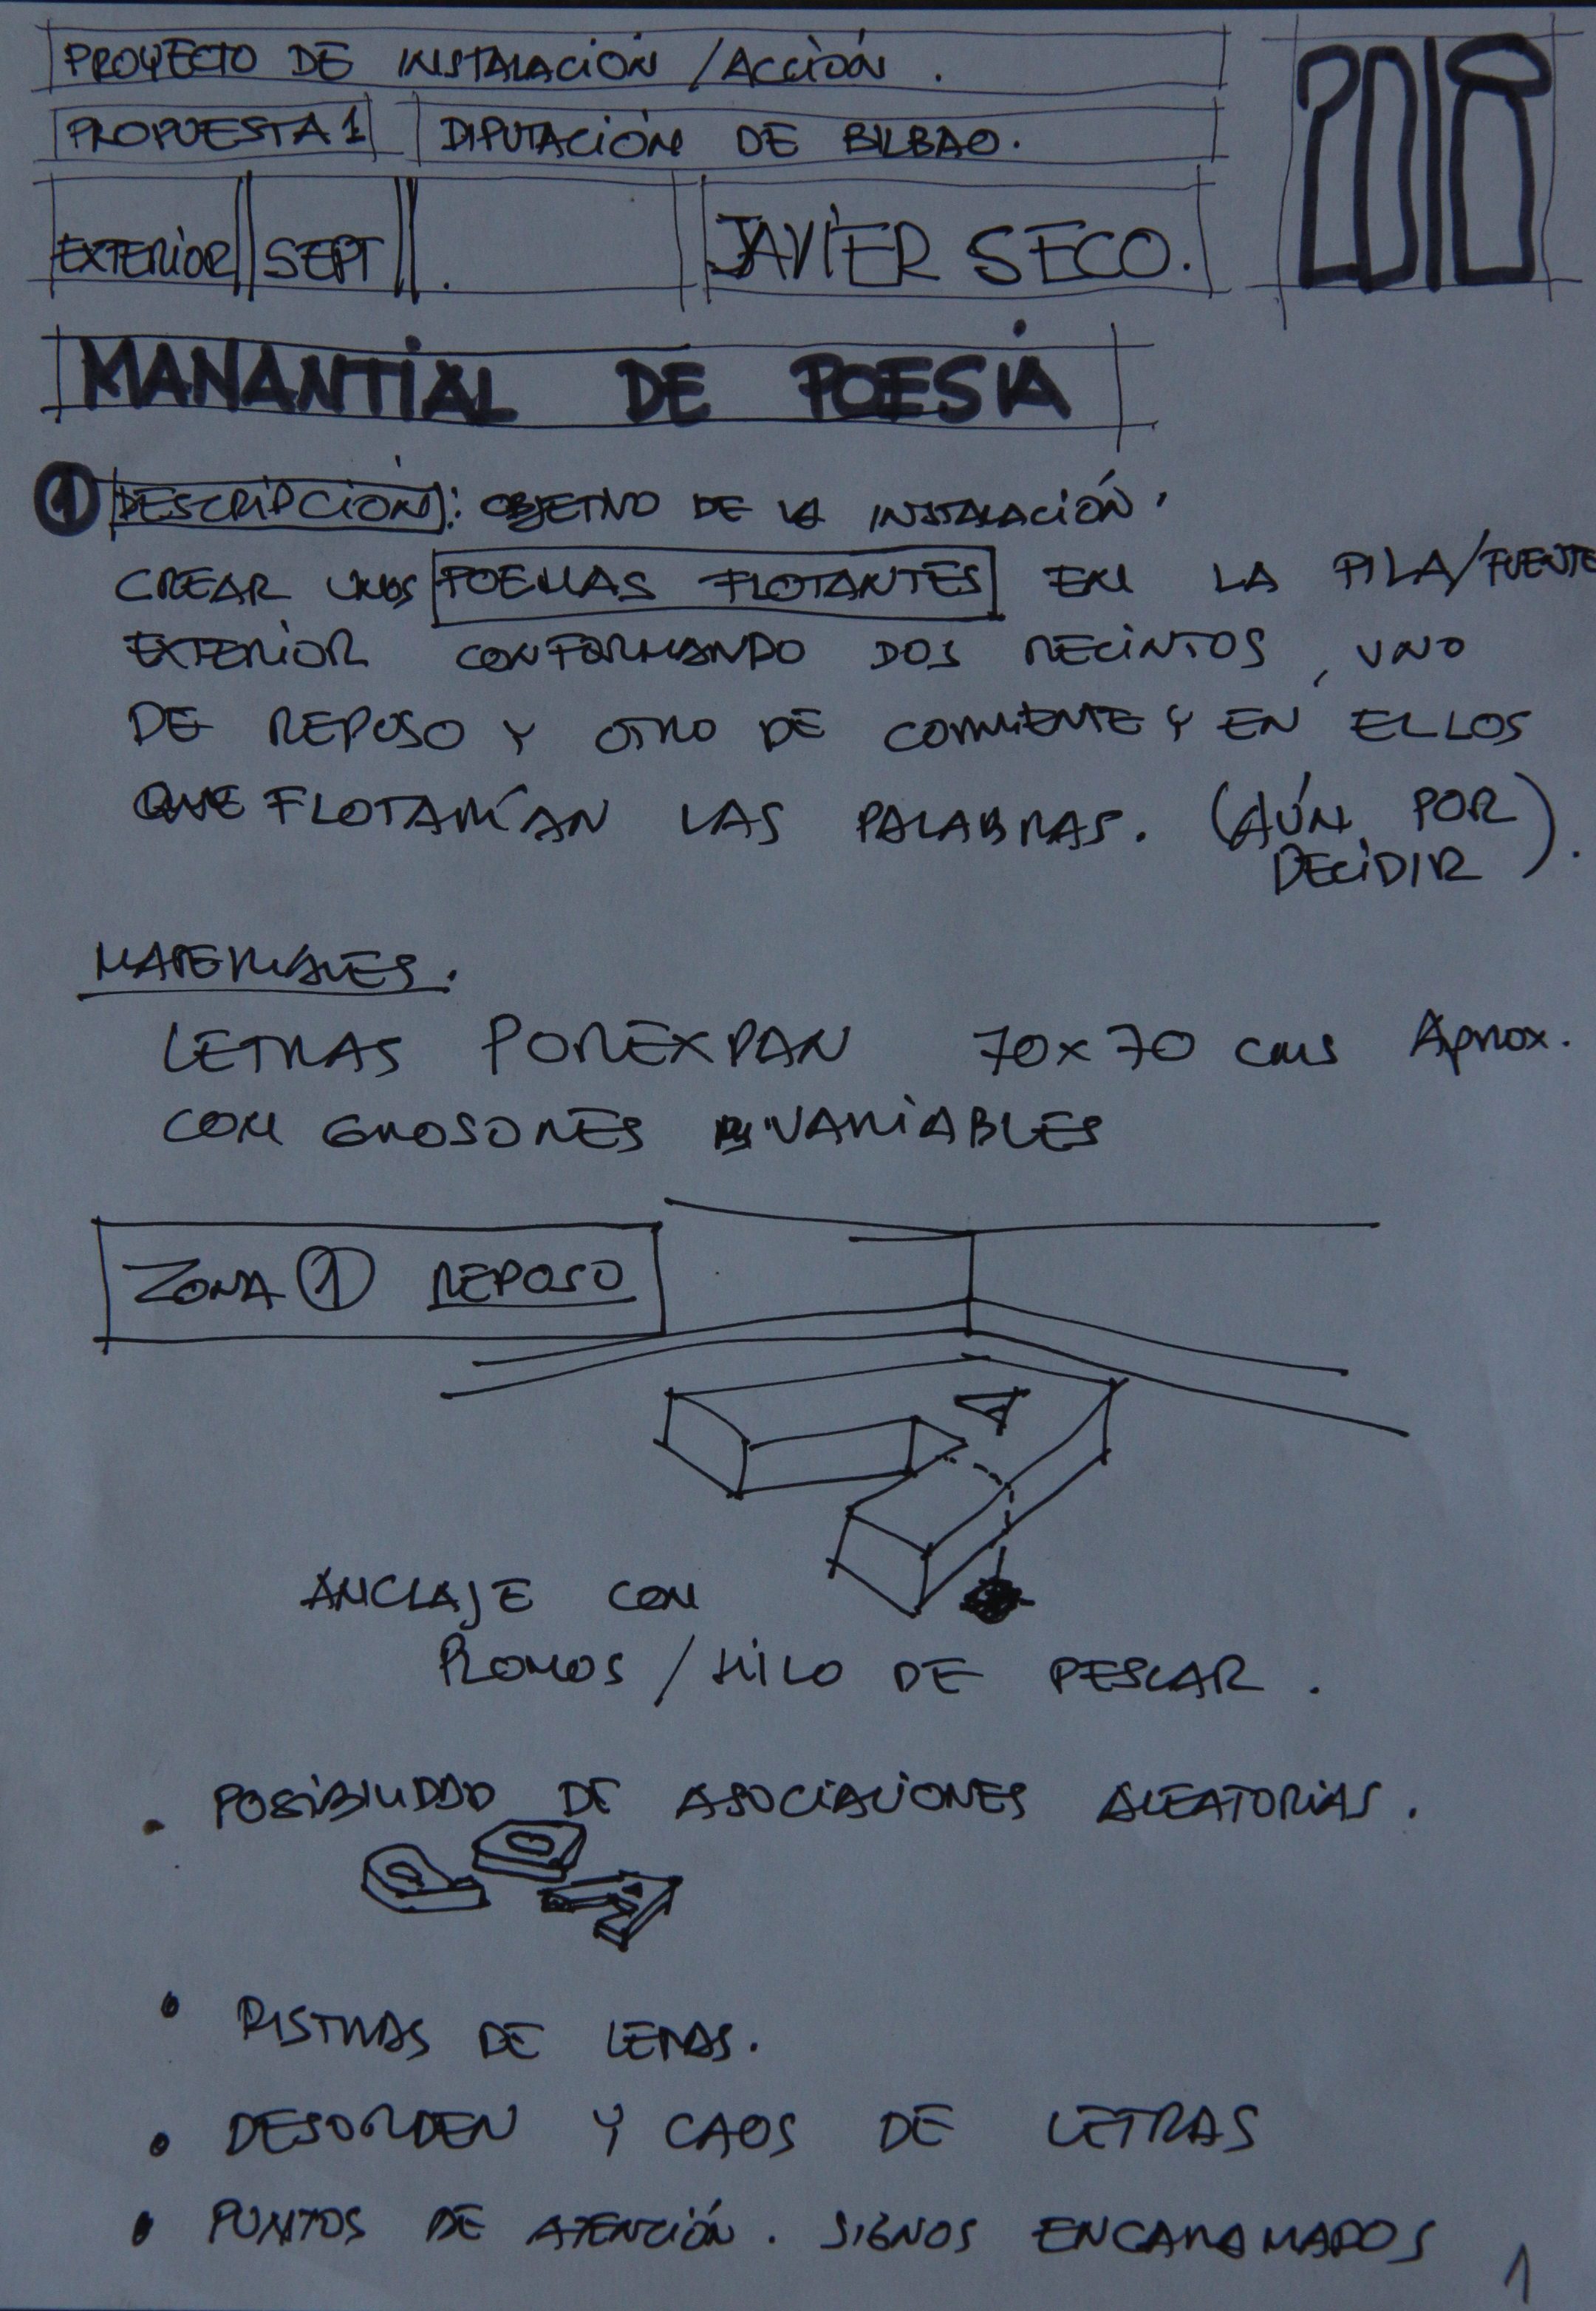 PROYECTO DE INSTALACIÓN / ACCIÓN.
2018
PROPUESTA 1 DIPUTACIÓN DE BILBAO.
EXTERIOR SEPT . JAVIER SECO.
MANANTIAL DE POESIA
1 DESCRIPCIÓN: OBJETIVO DE LA INSTALACIÓN.
CREAR UNOS POEMAS FLOTANTES EN LA PILA/FUENTE
EXTERIOR CONFORMANDO DOS RECINTOS, UNO
DE REPOSO Y OTRO DE CORRIENTE Y EN ELLOS
QUE FLOTARÍAN LAS PALABRAS. (AÚN POR
DECIDIR).
MATERIALES.
LETRAS POREXPAN 70x70 cms Aprox.
CON GROSORES VARIABLES
ZONA 1 REPOSO
A
ANCLAJE CON
PLOMOS / HILO DE PESCAR.
• POSIBILIDAD DE ASOCIACIONES ALEATORIAS.
• RISTRAS DE LETRAS.
• DESORDEN Y CAOS DE LETRAS
• PUNTOS DE ATENCIÓN. SIGNOS ENCARAMADOS
1